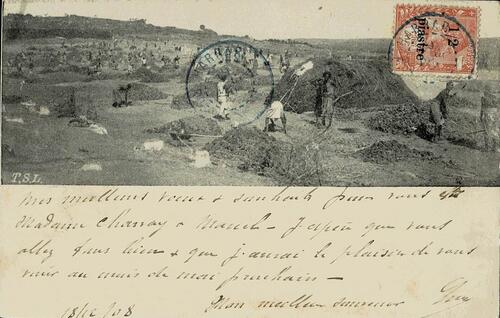 1/2
piastre
HARAR
T.S.L.
mes meilleurs voeux & souhaits pour vous
Madame Charray & Marcel - J'espère que vous
allez tous bien & que j'aurai le plaisir de vous
voir au mois de mai prochain -
Mon meilleur souvenir
18/12/08